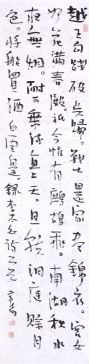 越王勾踐破吳歸戰士還家盡錦衣宮女
如花滿春殿祇今惟有鷓鴣飛南湖秋水
夜無烟耐可乘流直上天且就洞庭賒月
色將船買酒白雲邊錄李白詩二首